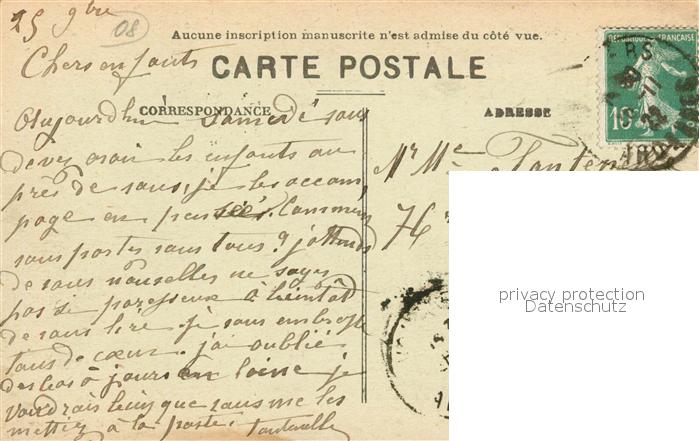 25 9bre
08
Aucune inscription manuscrite n'est admise du côté vue.
Chers enfants
CARTE POSTALE
CORRESPONDANCE
ADRESSE
REPUBLIQUE FRANÇAISE
10
Aujourdhui samedé vous
devez avoir les enfants au
près de vous, je les accom
page en pensées. Comment
vous portez vous tous? j'attends
de vous nouvelles ne soyez
pas si paresseux à bientôt
de vous lire je vous embrasse
tous de cœur. j'ai oublié
des bas à jours en laine je
voudrais bien que vous me les
mettiez à la poste.
Mr Mme
76
privacy protection
Datenschutz